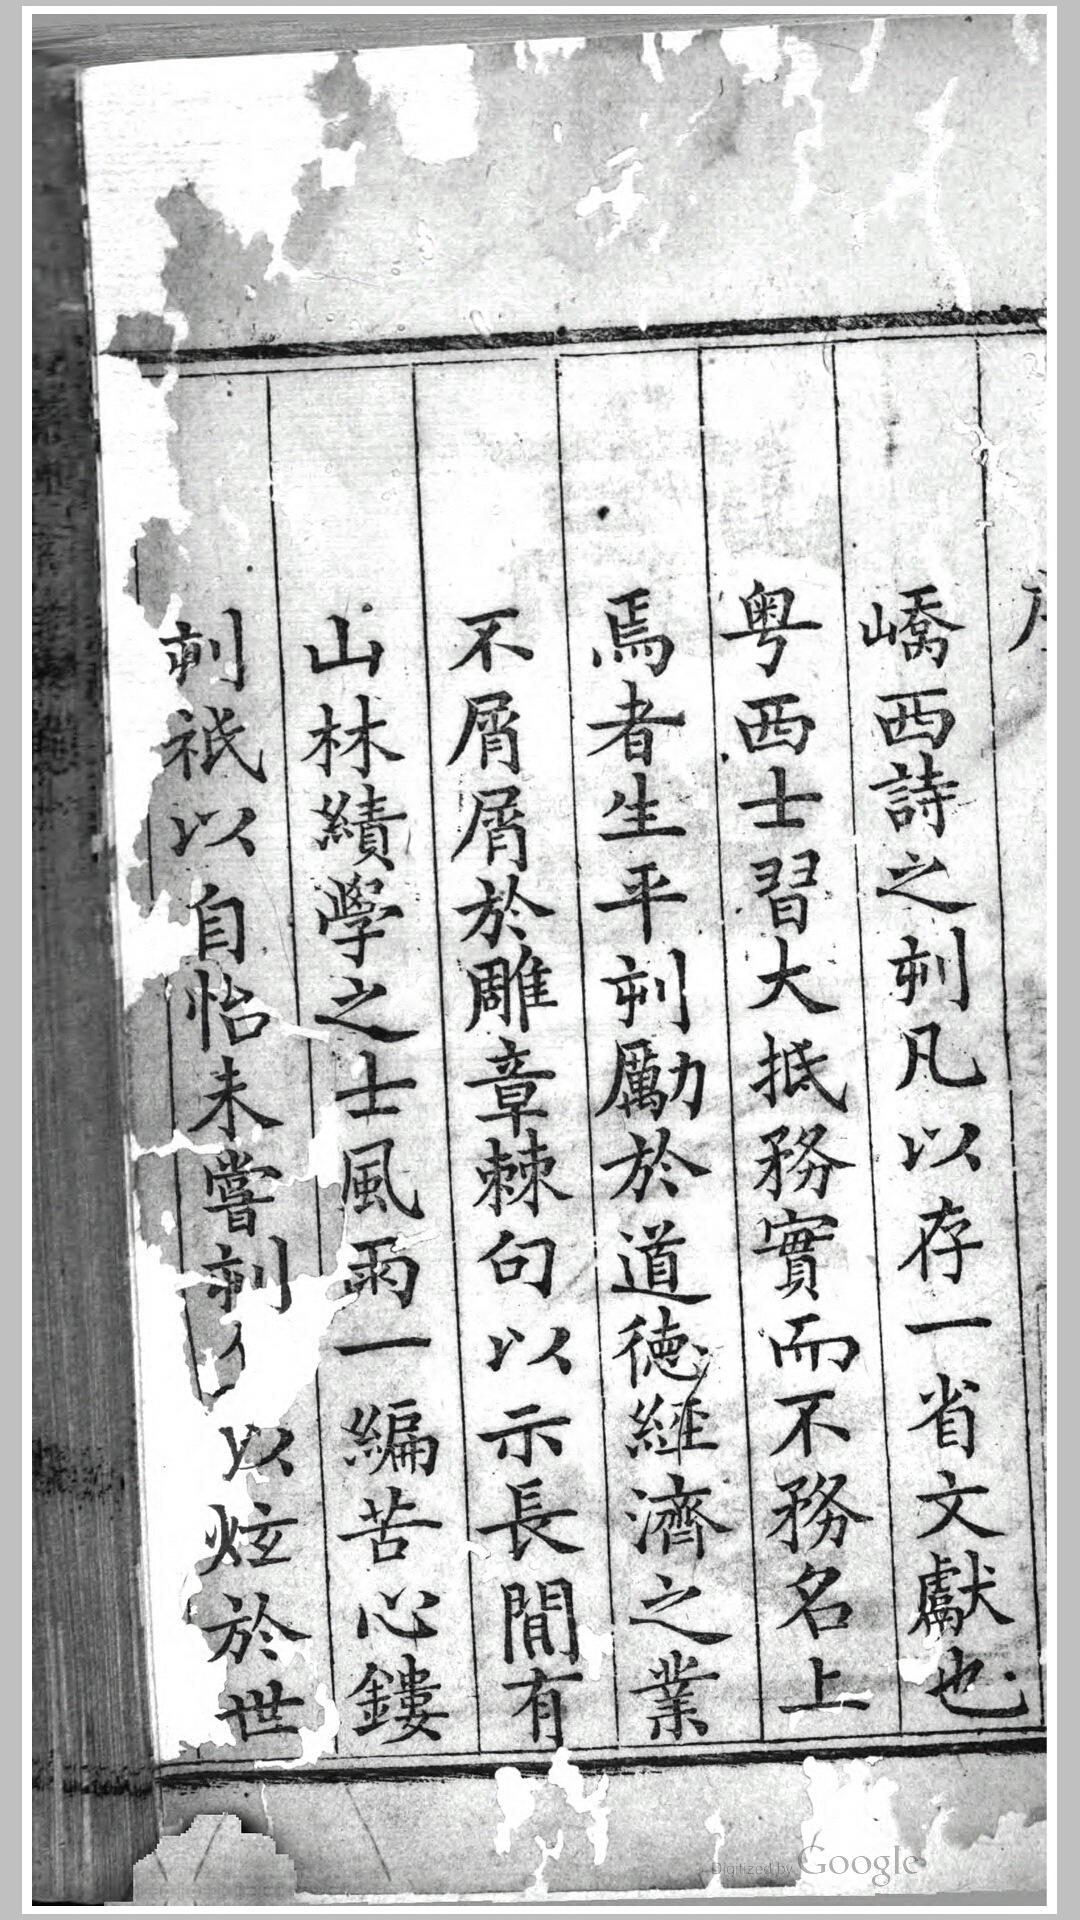 嶠西詩之刻凡以存一省文獻也
粤西士習大抵務實而不務名上
焉者生平刻勵於道徳經濟之業
不屑屑於雕章棘句以示長間有
山林績學之士風雨一編苦心鏤
刻祇以自怡未嘗刻以炫於世
Digitized by Google